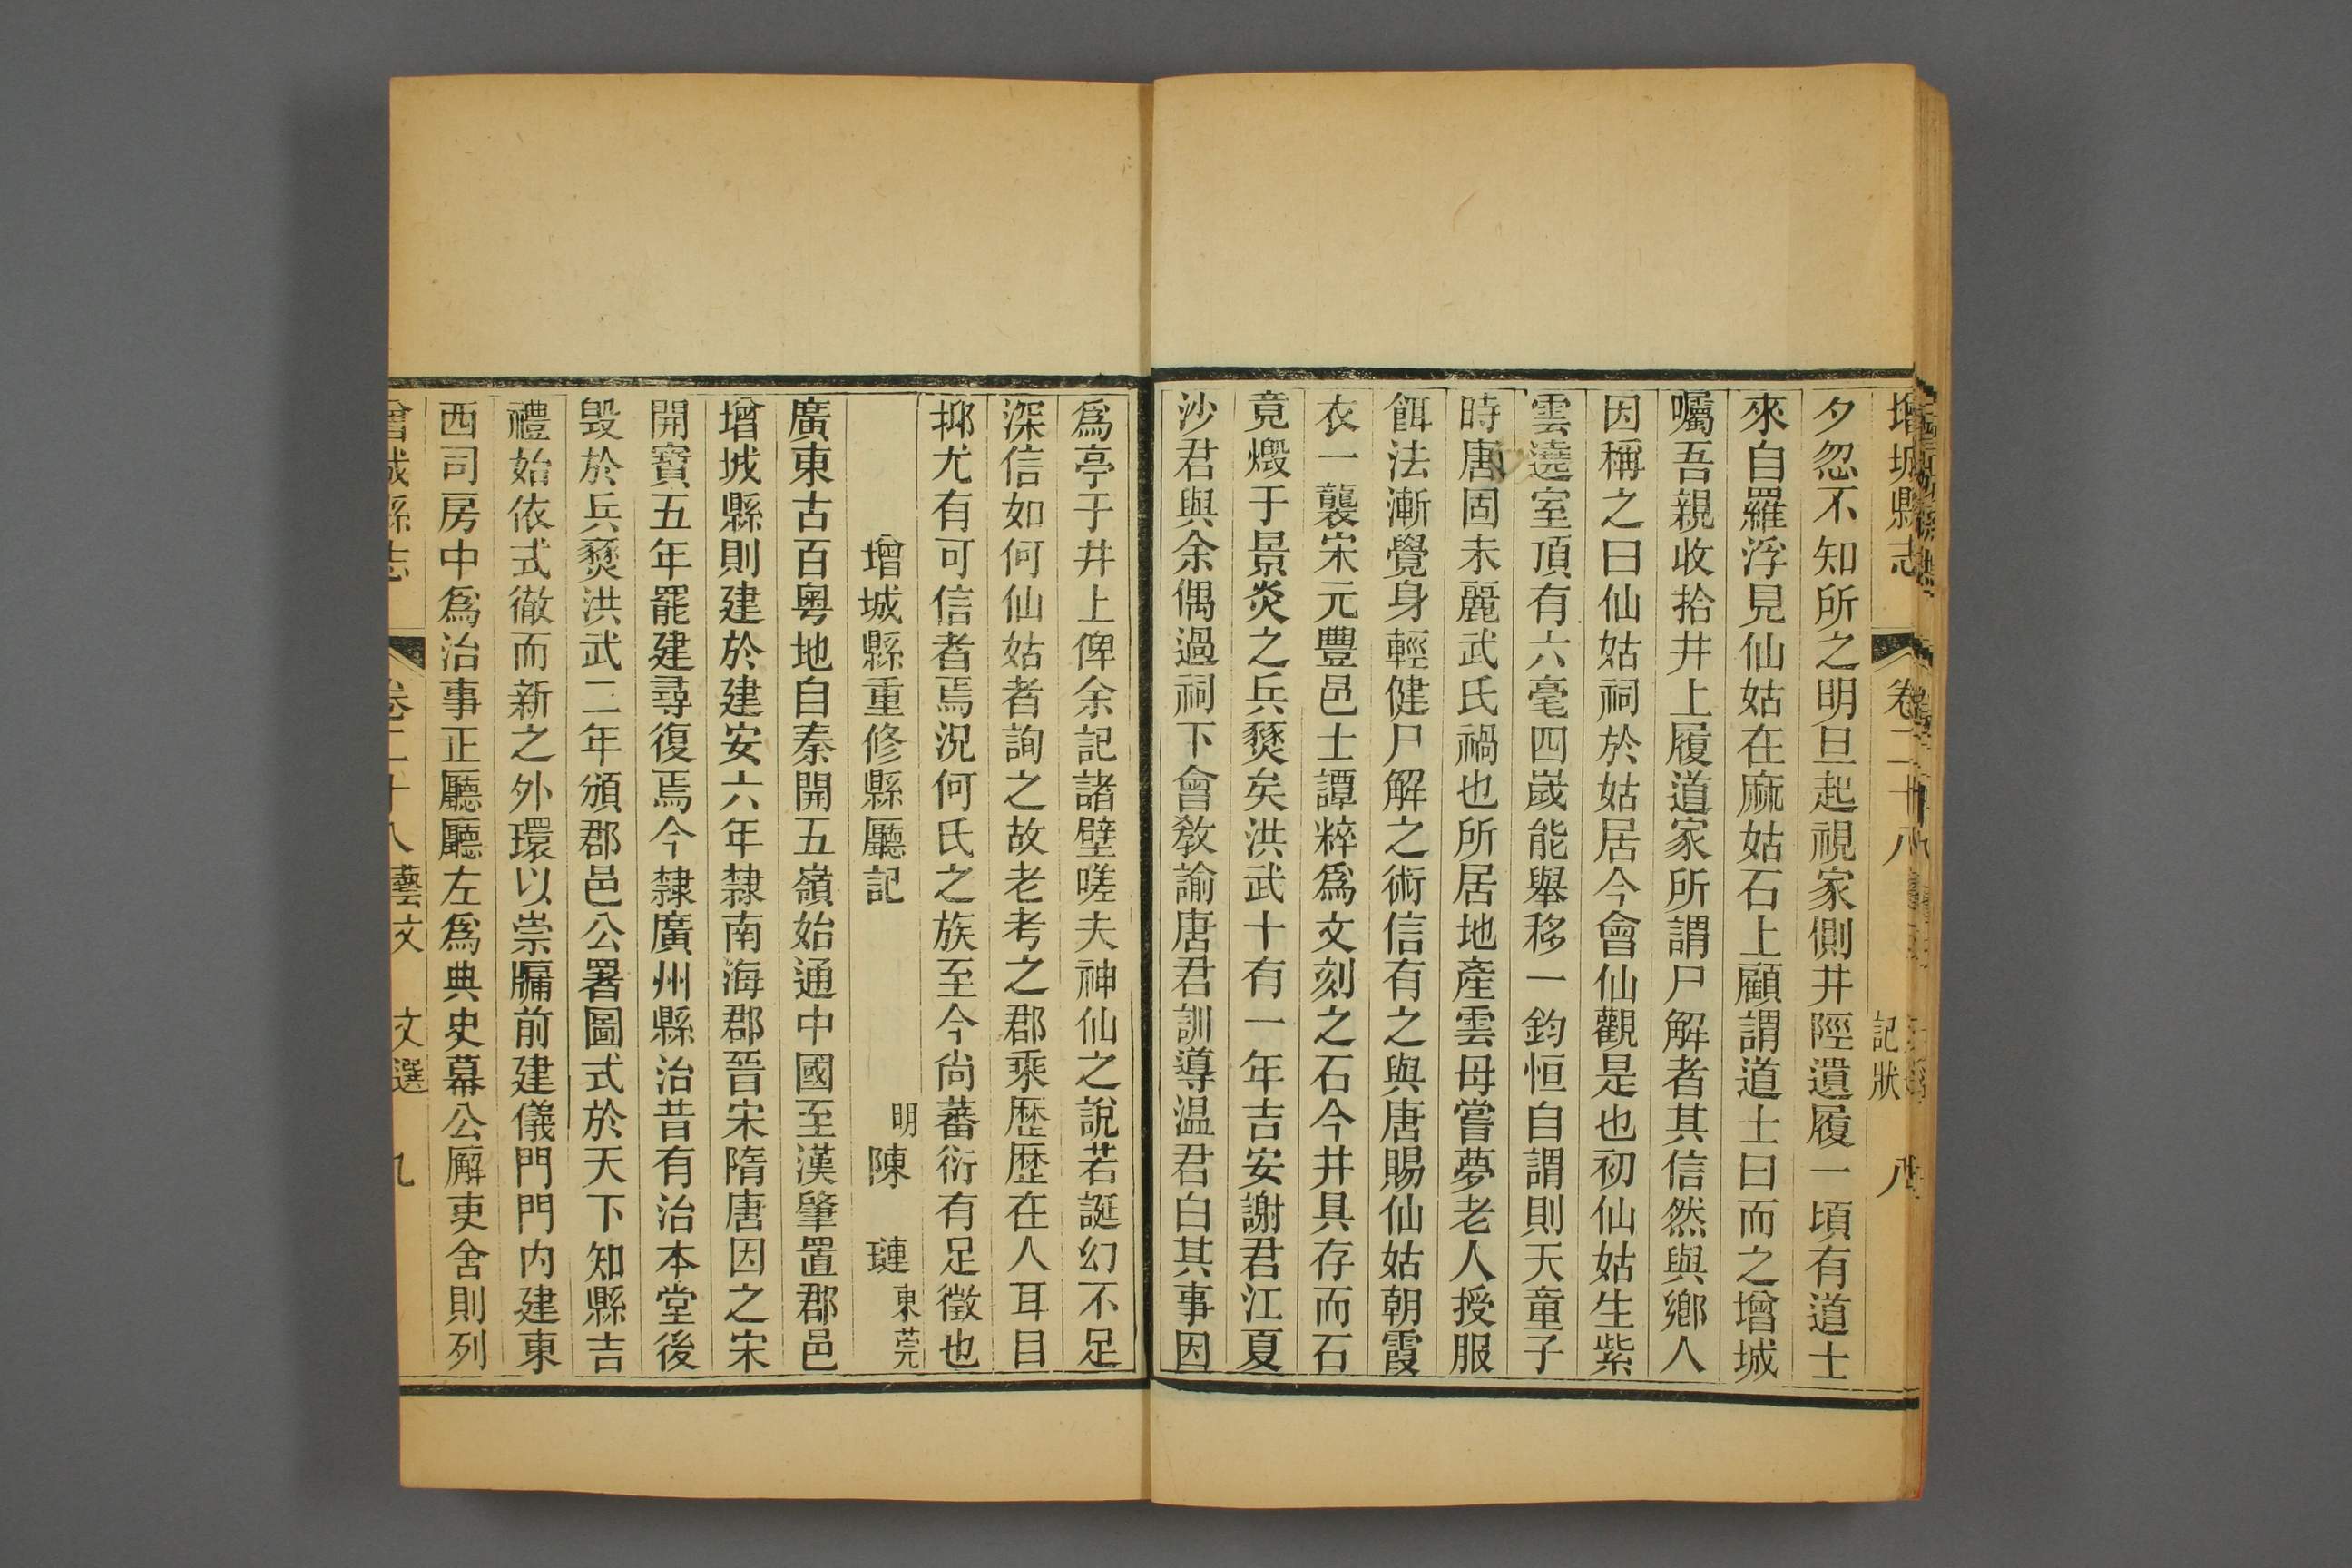 增城縣志 卷二十八 記狀 八
夕忽不知所之明旦起視家側井陘遺履一頃有道士
來自羅浮見仙姑在麻姑石上顧謂道士曰而之增城
囑吾親收拾井上履道家所謂尸解者其信然與鄉人
因稱之曰仙姑祠於姑居今會仙觀是也初仙姑生紫
雲遶室頂有六毫四嵗能舉移一鈞恒自謂則天童子
時唐固未麗武氏禍也所居地產雲母嘗夢老人授服
餌法漸覺身輕健尸解之術信有之與唐賜仙姑朝霞
衣一襲宋元豐邑士譚粹爲文刻之石今井具存而石
竟燬于景炎之兵燹矣洪武十有一年吉安謝君江夏
沙君與余偶過祠下會敎諭唐君訓導温君白其事因
爲亭于井上俾余記諸壁嗟夫神仙之說若誕幻不足
深信如何仙姑者詢之故老考之郡乘歴歴在人耳目
抑尤有可信者焉況何氏之族至今尙蕃衍有足徵也
增城縣重修縣廳記 明 陳 璉 東莞
廣東古百粵地自秦開五嶺始通中國至漢肇置郡邑
增城縣則建於建安六年隸南海郡晉宋隋唐因之宋
開寶五年罷建尋復焉今隸廣州縣治昔有治本堂後
毁於兵燹洪武二年頒郡邑公署圖式於天下知縣吉
禮始依式徹而新之外環以崇牗前建儀門門內建東
西司房中爲治事正廳廳左爲典史幕公廨吏舍則列
曾城縣志 卷二十八 藝文 文選 九